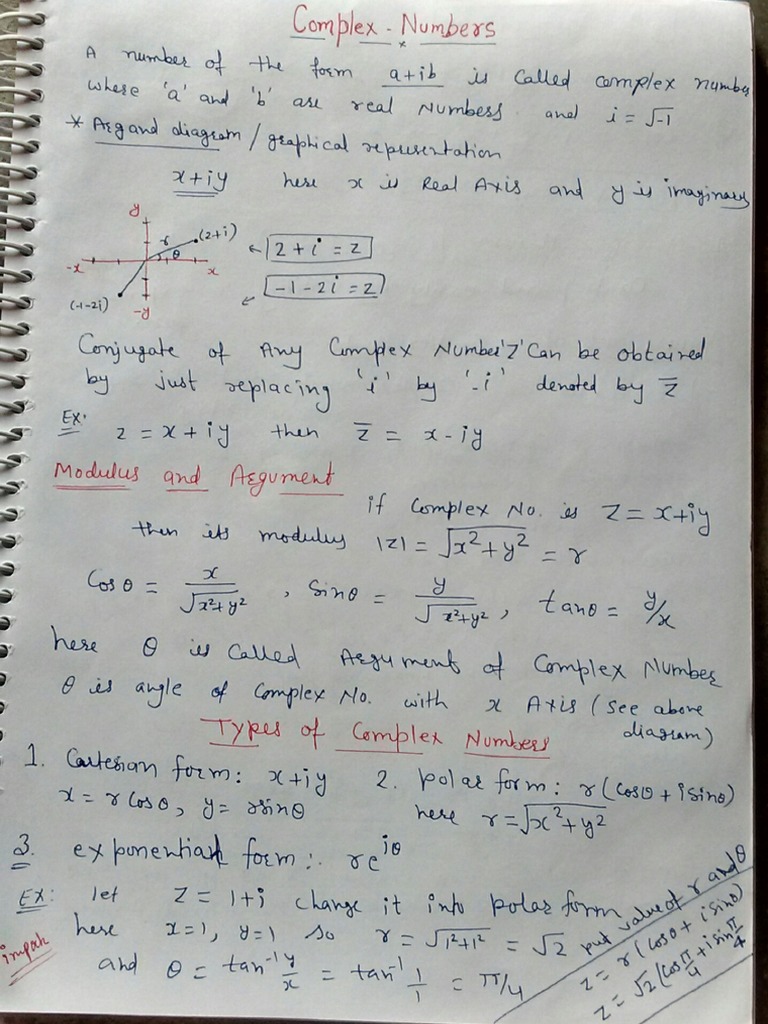 Complex - Numbers
A number of the form a+ib is called complex number
where 'a' and 'b' are real Numbers. and i = √-1
* Argand diagram / graphical representation
x+iy here x is Real Axis and y is imaginary
y
r (2+i)
θ
-x x
(-1-2i)
-y
2 + i = z
-1 - 2i = z
Conjugate of Any Complex Number 'z' Can be obtained
by just replacing 'i' by '-i' denoted by z̅
Ex: z = x + iy then z̅ = x - iy
Modulus and Argument
if Complex No. is Z = x+iy
then its modulus |z| = √x²+y² = r
Cos θ = x/√x²+y² , Sin θ = y/√x²+y² , tan θ = y/x
here θ is called Argument of Complex Number
θ is angle of Complex No. with x Axis (see above
diagram)
Types of Complex Numbers
1. Cartesian form: x+iy
x = r cos θ, y = r sin θ
2. polar form: r(cos θ + i sin θ)
here r = √x²+y²
3. exponential form: re^iθ
Ex: let Z = 1+i change it into polar form
here x=1, y=1 so r = √1²+1² = √2
and θ = tan⁻¹ y/x = tan⁻¹ 1/1 = π/4
put value of r and θ
z = r (cos θ + i sin θ)
z = √2 (cos π/4 + i sin π/4)